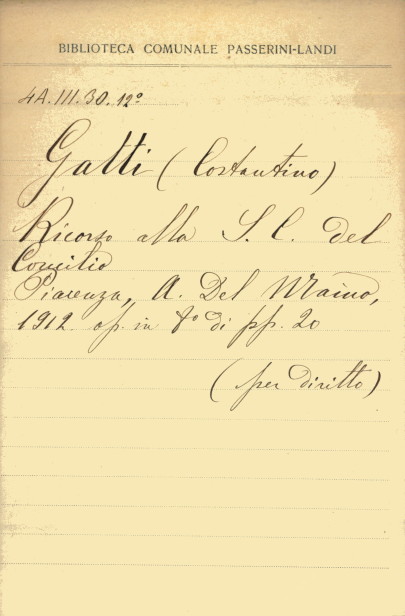 BIBLIOTECA COMUNALE PASSERINI-LANDI
4A.III.30.12°
Gatti (Costantino)
Ricorso alla S. C. del
Concilio
Piacenza, A. Del Maino,
1912 op. in 8° di pp. 20
(per diritto)